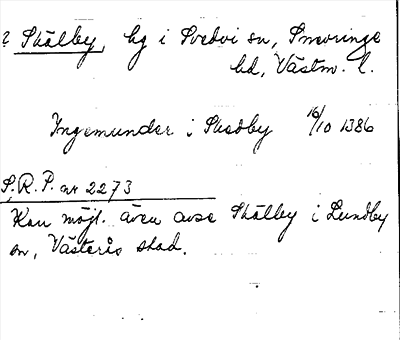 ? Skälby, by i Svedvi sn, Snevringe
hd, Västm. l.
Ingemunder i Skedby 16/10 1386
S.R.P. nr 2273
Kan möjl. även avse Skälby i Lundby
sn, Västerås stad.